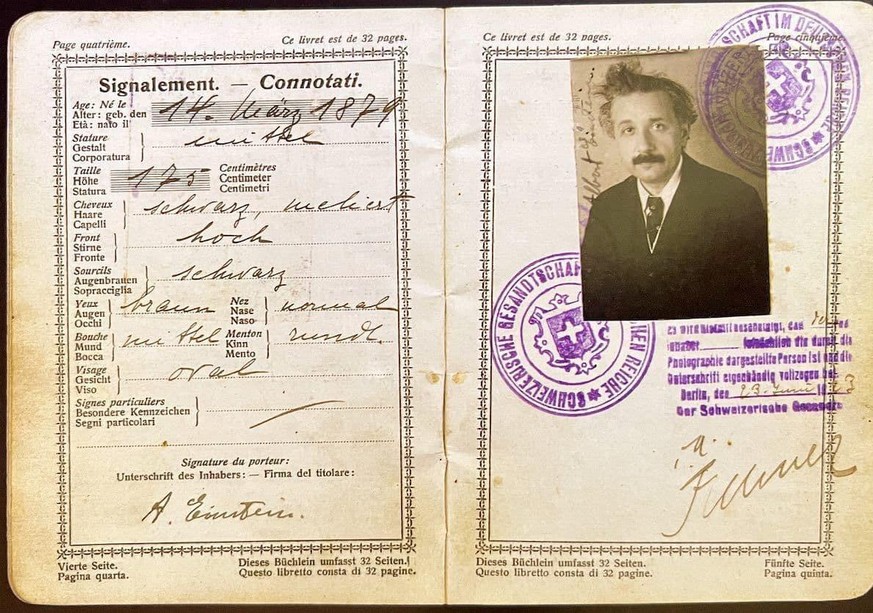 Page quatrième.
Ce livret est de 32 pages.
Signalement. — Connotati.
Age: Né le
Alter: geb. den
Età: nato il
14. März 1879
Stature
Gestalt
Corporatura
mittel
Taille
Höhe
Statura
175
Centimètres
Centimeter
Centimetri
Cheveux
Haare
Capelli
schwarz, meliert
Front
Stirne
Fronte
hoch
Sourcils
Augenbrauen
Sopracciglia
schwarz
Yeux
Augen
Occhi
braun
Nez
Nase
Naso
normal
Bouche
Mund
Bocca
mittel
Menton
Kinn
Mento
rund
Visage
Gesicht
Viso
oval
Signes particuliers
Besondere Kennzeichen
Segni particolari
Signature du porteur:
Unterschrift des Inhabers: — Firma del titolare:
A. Einstein.
Vierte Seite.
Pagina quarta.
Dieses Büchlein umfasst 32 Seiten.
Questo libretto consta di 32 pagine.
Ce livret est de 32 pages.
Page cinquième.
Albert Einstein
SCHWEIZERISCHE GESANDTSCHAFT IM DEUTSCHEN REICHE
SCHWEIZERISCHE GESANDTSCHAFT IM DEUTSCHEN REICHE
Es wird hiermit bescheinigt, das
Inhaber die durch die
Photographie dargestellte Person ist und die
Unterschrift eigenhändig vollzogen
Berlin, den 23. Juni 19 3
Der Schweizerische Gesandte
Dieses Büchlein umfasst 32 Seiten.
Questo libretto consta di 32 pagine.
Fünfte Seite.
Pagina quinta.